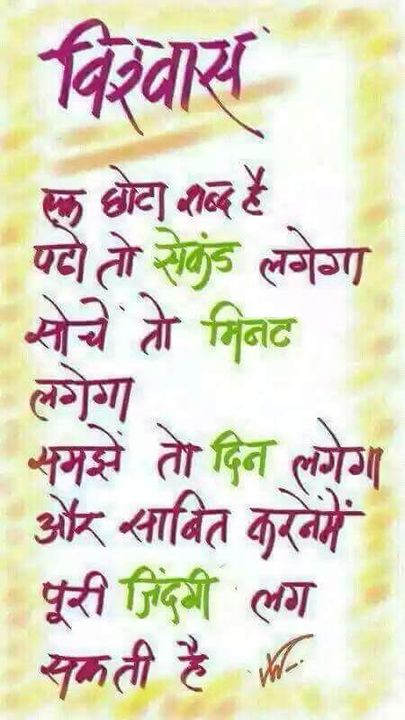 विश्वास
एक छोटा शब्द है
पढो तो सेकंड लगेगा
सोचें तो मिनट
लगेगा
समझें तो दिन लगेगा
और साबित करनेंमें
पूरी जिंदगी लग
सकती है